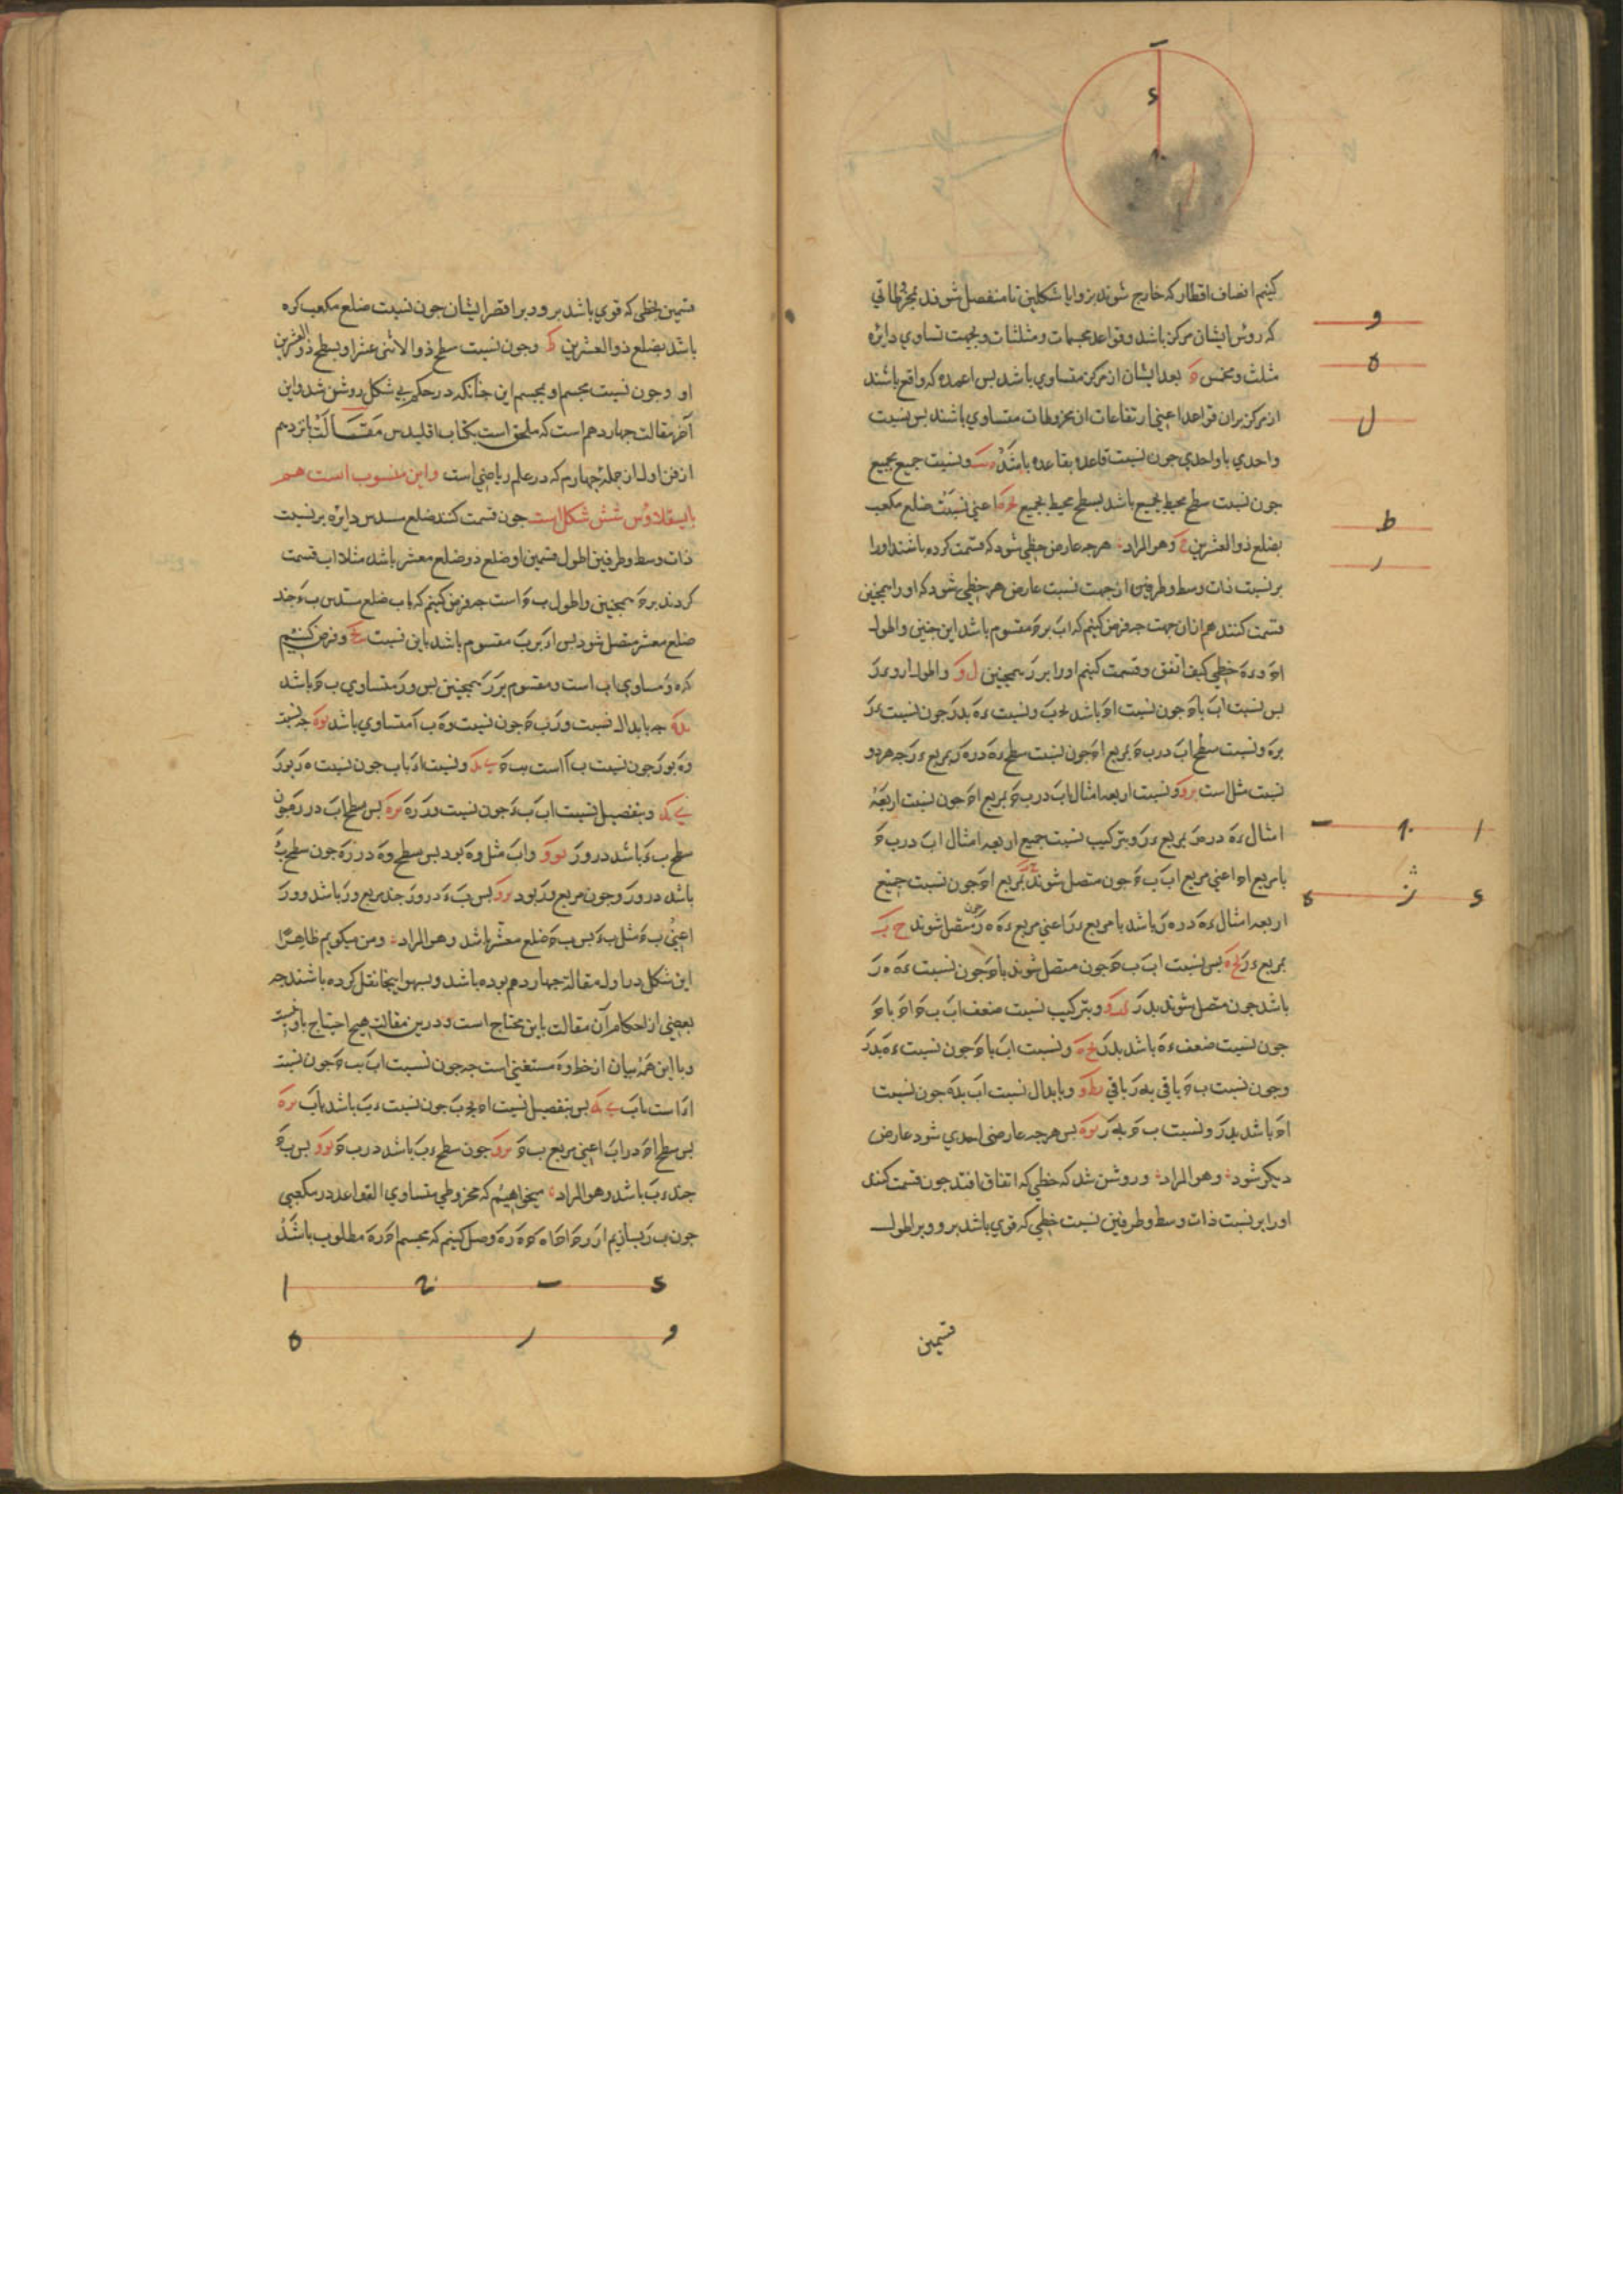 کنیم انصاف اقطار که خارج شوند بزوایا شکلین تا منفصل شوند بمخروطاتی
که رؤس ایشان مرکز باشد و قواعد مجسمات و مثلثات و بجهت تساوی دایره
مثلث و مخمس بعد ایشان از مرکز متساوی باشد بس اعمده که واقع باشند
از مرکز بران قواعد اعنی ارتفاعات ان مخروطات متساوی باشند بس نسبت
واحدی با واحدی جون نسبت قاعده بقاعده باشد و نسبت جمیع بجمیع
جون نسبت سطح محیط بجمیع باشد بسطح محیط بجمیع اعنی نسبت ضلع مکعب
بضلع ذو العشرین وهو المراد هرجه عارض خطی شود که قسمت کرده باشند اورا
بر نسبت ذات وسط و طرفین از جهت نسبت عارض هر خطی شود که اورا همجنین
قسمت کنند هم ازان جهت جه فرض کنیم که اب بر ح مقسوم باشد این جنین و اطول
اح و ء ه خطی کیف اتفق و قسمت کنیم اورا بر ز همجنین و اطول او ء ز
بس نسبت اب باح جون نسبت اح باشد بحب و نسبت ء ه بدز جون نسبت ء ز
بزه و نسبت سطح اب در ب ح بمربع اح جون نسبت سطح ء ه در ه ز بمربع ء ز جه هر دو
نسبت مثل است و نسبت اربعه امثال اب در ب ح بمربع اح جون نسبت اربعة
امثال ء ه در ه ز بمربع ء ز و بترکیب نسبت جمیع اربعه امثال اب در ب ح
با مربع اح اعنی مربع اب ب ح جون متصل شوند بمربع اح جون نسبت جمیع
اربعه امثال ء ه در ه ز باشد با مربع ء ز اعنی مربع ء ه ه ز جون متصل شوند
بمربع ء ز بس نسبت اب ب ح جون متصل شوند باح جون نسبت ء ه ه ز
باشد جون متصل شوند بدز و بترکیب نسبت ضعف اب ب ح اح باح
جون نسبت ضعف ء ه باشد بدز و نسبت اب باح جون نسبت ء ه بدز
و جون نسبت ب ح باقی به ز باقی و بابدال نسبت اب بده جون نسبت
اح باشد بدز و نسبت ب ح به ز بس هرجه عارضی احدی شود عارض
دیکر شود وهو المراد و روشن شد که خطی که اتفاق افتد جون قسمت کنند
اورا بر نسبت ذات وسط و طرفین نسبت خطی که قوی باشد برو و بر اطول
قسمین
و
ه
ل
ط
ر
ا ح ب
ء ز ه
ب
ء
ح
قسمین بخطی که قوی باشد برو و بر اقصر ایشان جون نسبت ضلع مکعب کره
باشد بضلع ذو العشرین و جون نسبت سطح ذو الاثنی عشر او بسطح ذو العشرین
او و جون نسبت مجسم او بمجسم این جنانکه در حکم شکل روشن شد و این
آخر مقالت جهاردهم است که ملحق است بکتاب اقلیدس مقالت پانزدهم
از فن اول از جمله جهارم که در علم ریاضی است و این منسوب است هم
بابسقلاوس شش شکل است جون قسمت کنند ضلع مسدس دایره بر نسبت
ذات وسط و طرفین اطول قسمین او ضلع ذو ضلع معشر باشد مثلا اب قسمت
کردند بر ح همجنین و اطول ب ح است جه فرض کنیم که اب ضلع مسدس ب ء جند
ضلع معشر متصل شود بس اء بر ب مقسوم باشد باین نسبت و فرض کنیم
که ه و مساوی اب است و مقسوم بر ز همجنین بس و ز متساوی ب ح باشد
جه بابدال نسبت و ز ب ح جون نسبت و ه ب ا متساوی باشد جه نسبت
وه بوز جون نسبت ب ا است بب ح و نسبت اء باب جون نسبت ه و بوز
و بتفصیل نسبت اب ب ء جون نسبت و ز ز ه بس سطح اب در ز ه جون
سطح ب ء باشد در و ز و اب مثل و ه بود بس سطح و ه در ز ه جون سطح ب ء
باشد در و ز و جون مربع و ز بود بس ب ء در و ز جند مربع و ز باشد و و ز
اعنی ب ح مثل ب ء بس ب ح ضلع معشر باشد وهو المراد و من میکویم ظاهرا
این شکل در اول مقالة جهاردهم بوده باشد و بسهو اینجا نقل کرده باشند جه
بعضی از احکام آن مقالت باین محتاج است و درین مقالت هیج احتیاج باو نیست
و با این همه بیان از خط و ه مستغنی است جه جون نسبت اب بب ح جون نسبت
اء است باب بس بتفصیل نسبت اح بحب جون نسبت ء ب باشد باب
بس سطح اح در اب اعنی مربع ب ح جون سطح ء ب باشد در ب ح بس ب ح
جند ء ب باشد وهو المراد میخواهیم که مخروطی متساوی القواعد در مکعبی
جون ب ز بسازیم از ز ح ا ح ا ه ح ه ز ه وصل کنیم که مجسم اح ز ه مطلوب باشد
ا ح ب ء
ه ر و